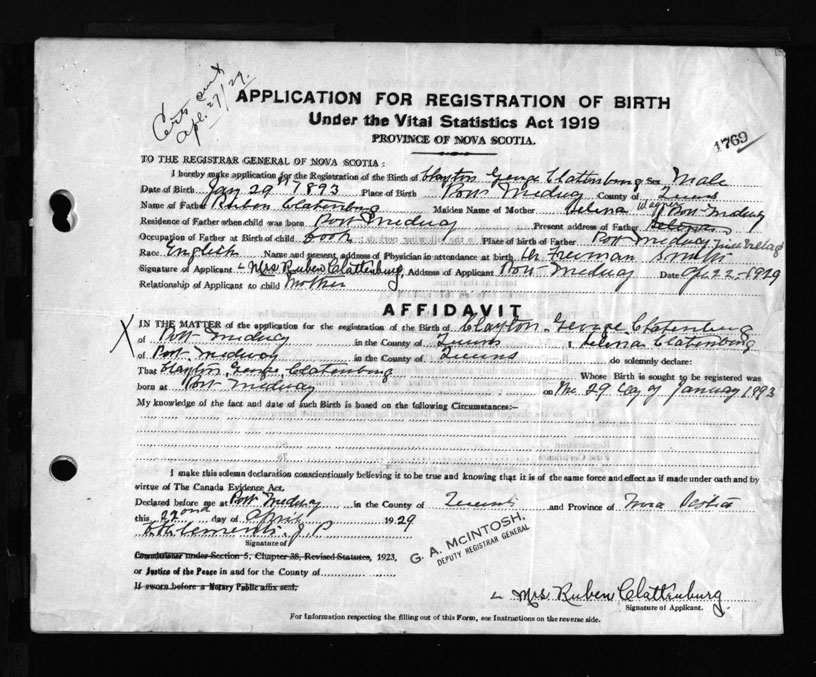 Certs sent
Apl. 27/29.
APPLICATION FOR REGISTRATION OF BIRTH
Under the Vital Statistics Act 1919
PROVINCE OF NOVA SCOTIA.
1769
TO THE REGISTRAR GENERAL OF NOVA SCOTIA:
I hereby make application for the Registration of the Birth of Clayton George Clattenburg Sex Male
Date of Birth Jan 29th 1893 Place of Birth Port Medway County of Queens
Name of Father Ruben Clatenburg Maiden Name of Mother Selena
Residence of Father when child was born Port Medway Present address of Father Port Medway
Occupation of Father at Birth of child Cook Place of Birth of Father Port Medway
Race English Name and present address of Physician in attendance at birth Dr Freeman Smith
Signature of Applicant Mrs Ruben Clattenburg Address of Applicant Port Medway Date Ap. 22-1929
Relationship of Applicant to child Mother
AFFIDAVIT
X IN THE MATTER of the application for the registration of the Birth of Clayton George Clatenburg
of Port Medway in the County of Queens I, Selena Clatenburg
of Port Medway in the County of Queens do solemnly declare:
That Clayton George Clatenburg Whose Birth is sought to be registered was
born at Port Medway on The 29 Day of January 1893
My knowledge of the fact and date of such Birth is based on the following Circumstances:—
I make this solemn declaration conscientiously believing it to be true and knowing that it is of the same force and effect as if made under oath and by
virtue of The Canada Evidence Act.
Declared before me at Port Medway in the County of Queens and Province of Nova Scotia
this 22nd day of April 1929
Clements J P
Signature of
Commissioner under Section 5, Chapter 38, Revised Statutes, 1923,
or Justice of the Peace in and for the County of
If sworn before a Notary Public affix seal.
G. A. McINTOSH,
DEPUTY REGISTRAR GENERAL
Mrs Ruben Clattenburg.
Signature of Applicant.
For Information respecting the filling out of this Form, see Instructions on the reverse side.